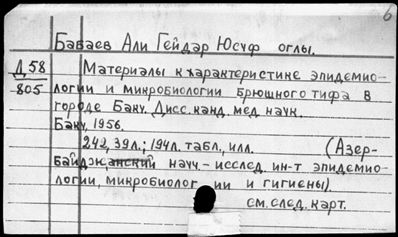 б
Бабаев Али Гейдар Юсуф оглы.
Д 58
805
Материалы к характеристике эпидемио-
логии и микробиологии брюшного тифа в
городе Баку. Дисс. канд. мед. наук.
Баку, 1956.
242, 39 л.; 194 л. табл., илл. (Азер-
байджанский науч.-исслед. ин-т эпидемио-
логии, микробиолог ии и гигиены).
см. след. карт.